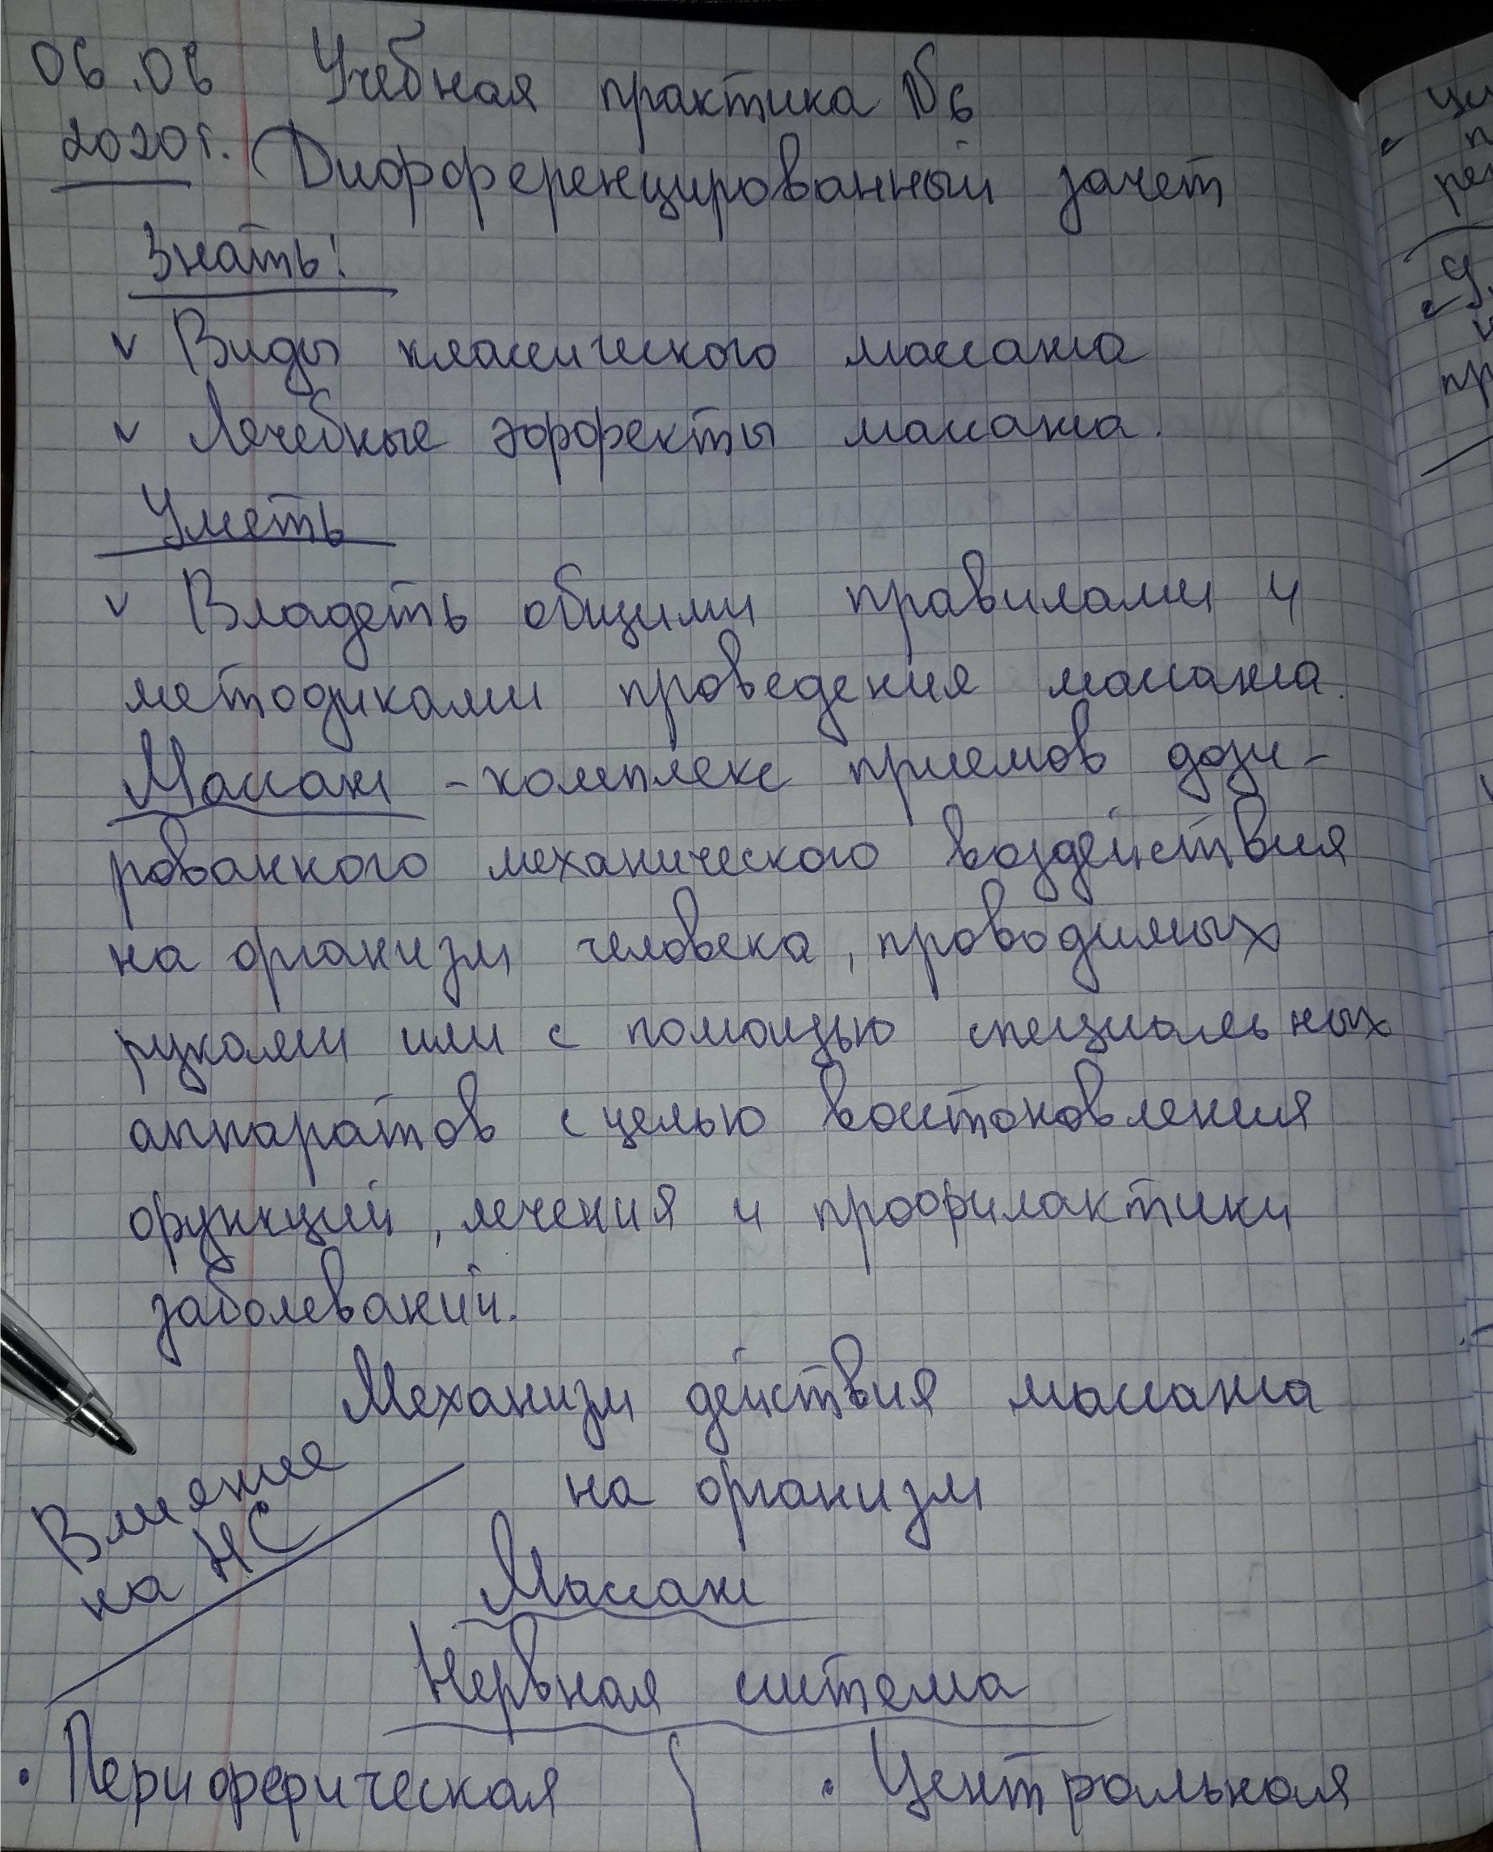 06.06 Учебная практика №6
2020г. Дифференцированный зачет
Знать:
v Виды классического массажа
v Лечебные эффекты массажа.
Уметь
v Владеть общими правилами и
методиками проведения массажа.
Массаж - комплекс приемов дози-
рованного механического воздействия
на организм человека, проводимых
руками или с помощью специальных
аппаратов с целью востановления
функций, лечения и профилактики
заболеваний.
Механизм действия массажа
на организм
Влияние
на НС
Массаж
Нервная система
• Периферическая • Центральная